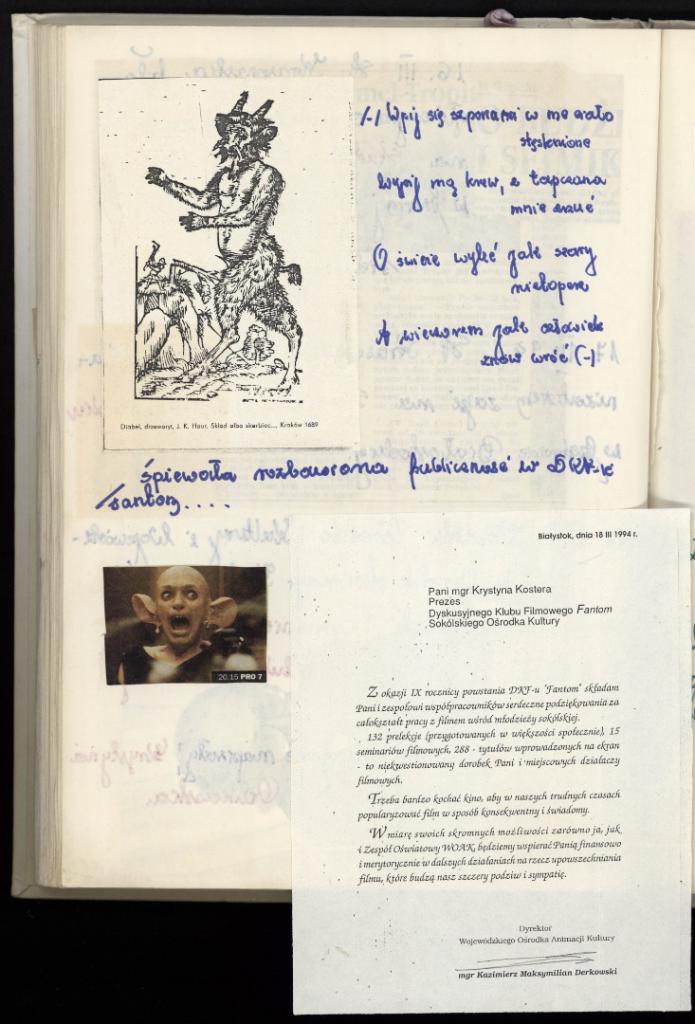 (-) Wpij się szponami w me ciało
stęsknione
Wypij mą krew, z tapczana
mnie zrzuć
O świcie wyleć jak szary
nietoperz
A wieczorem jak człowiek
znów wróć (-)
Diabeł, drzeworyt, J. K. Haur, Skład albo skarbiec... Kraków 1689
śpiewała rozbawiona publiczność w DKF-ie
Fantom....
20.15 PRO 7
Białystok, dnia 18 III 1994 r.
Pani mgr Krystyna Kostera
Prezes
Dyskusyjnego Klubu Filmowego Fantom
Sokólskiego Ośrodka Kultury
Z okazji IX rocznicy powstania DKF-u "Fantom" składam
Pani i zespołowi współpracowników serdeczne podziękowania za
całokształt pracy z filmem wśród młodzieży sokólskiej.
132 prelekcje (przygotowanych w większości społecznie), 15
seminariów filmowych, 288 - tytułów wprowadzonych na ekran
- to niekwestionowany dorobek Pani i miejscowych działaczy
filmowych.
Trzeba bardzo kochać kino, aby w naszych trudnych czasach
popularyzować film w sposób konsekwentny i świadomy.
W miarę swoich skromnych możliwości zarówno ja, jak
i Zespół Oświatowy WOAK, będziemy wspierać Panią finansowo
i merytorycznie w dalszych działaniach na rzecz upowszechniania
filmu, które budzą nasz szczery podziw i sympatię.
Dyrektor
Wojewódzkiego Ośrodka Animacji Kultury
mgr Kazimierz Maksymilian Derkowski